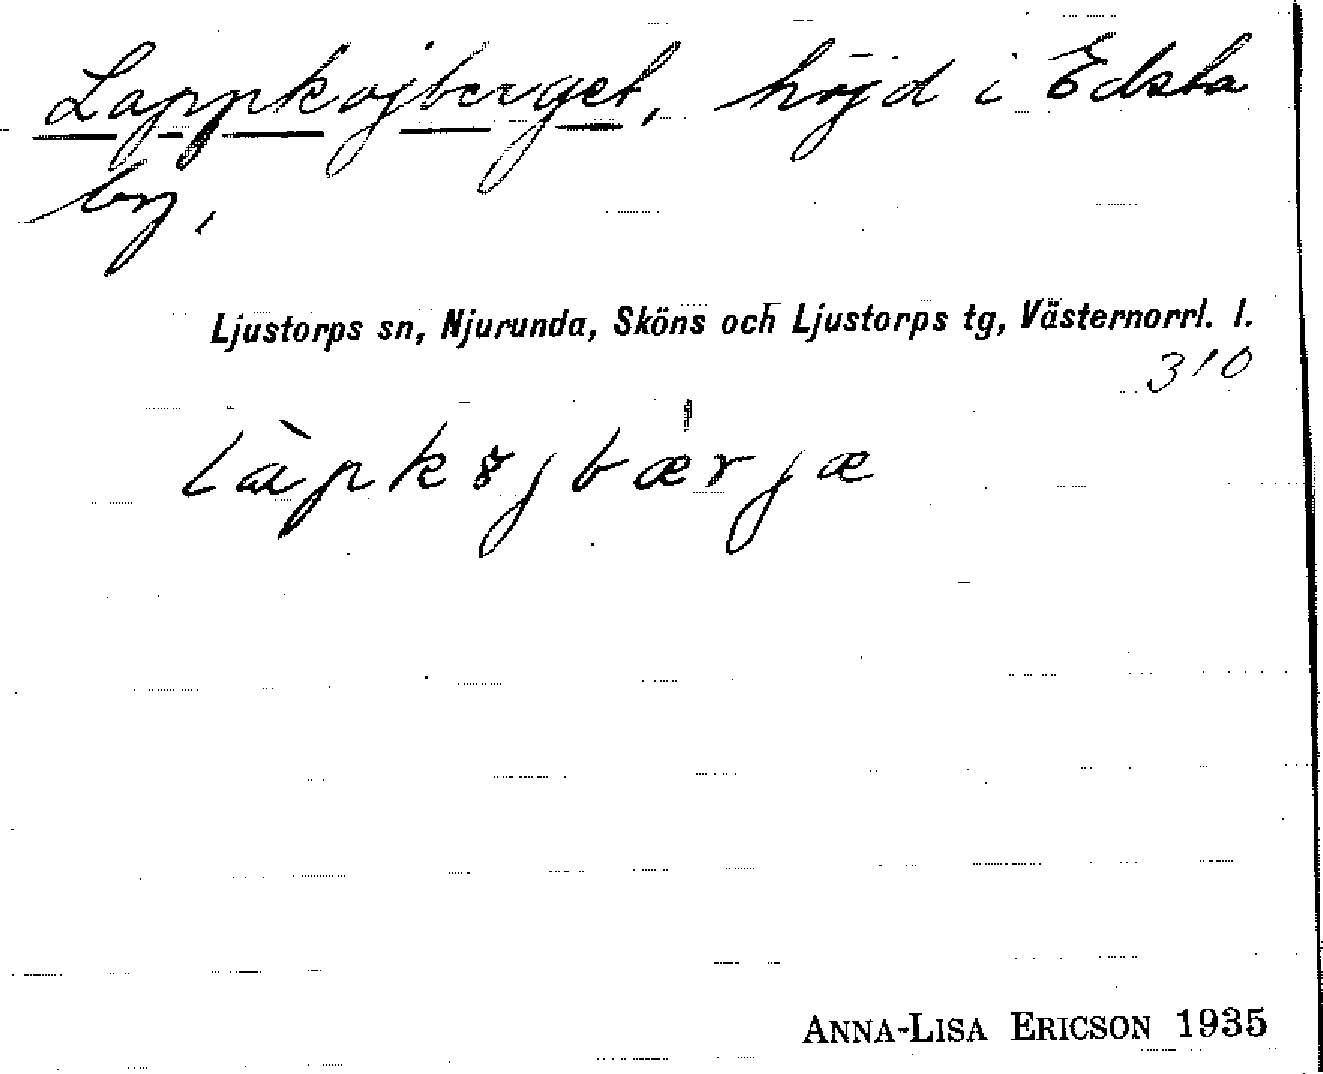 Lappkojberget, höjd i Edsta
by,
Ljustorps sn, Njurunda, Sköns och Ljustorps tg, Västernorrl. l.
310
làpk8jbærjæ
ANNA-LISA ERICSON 1935